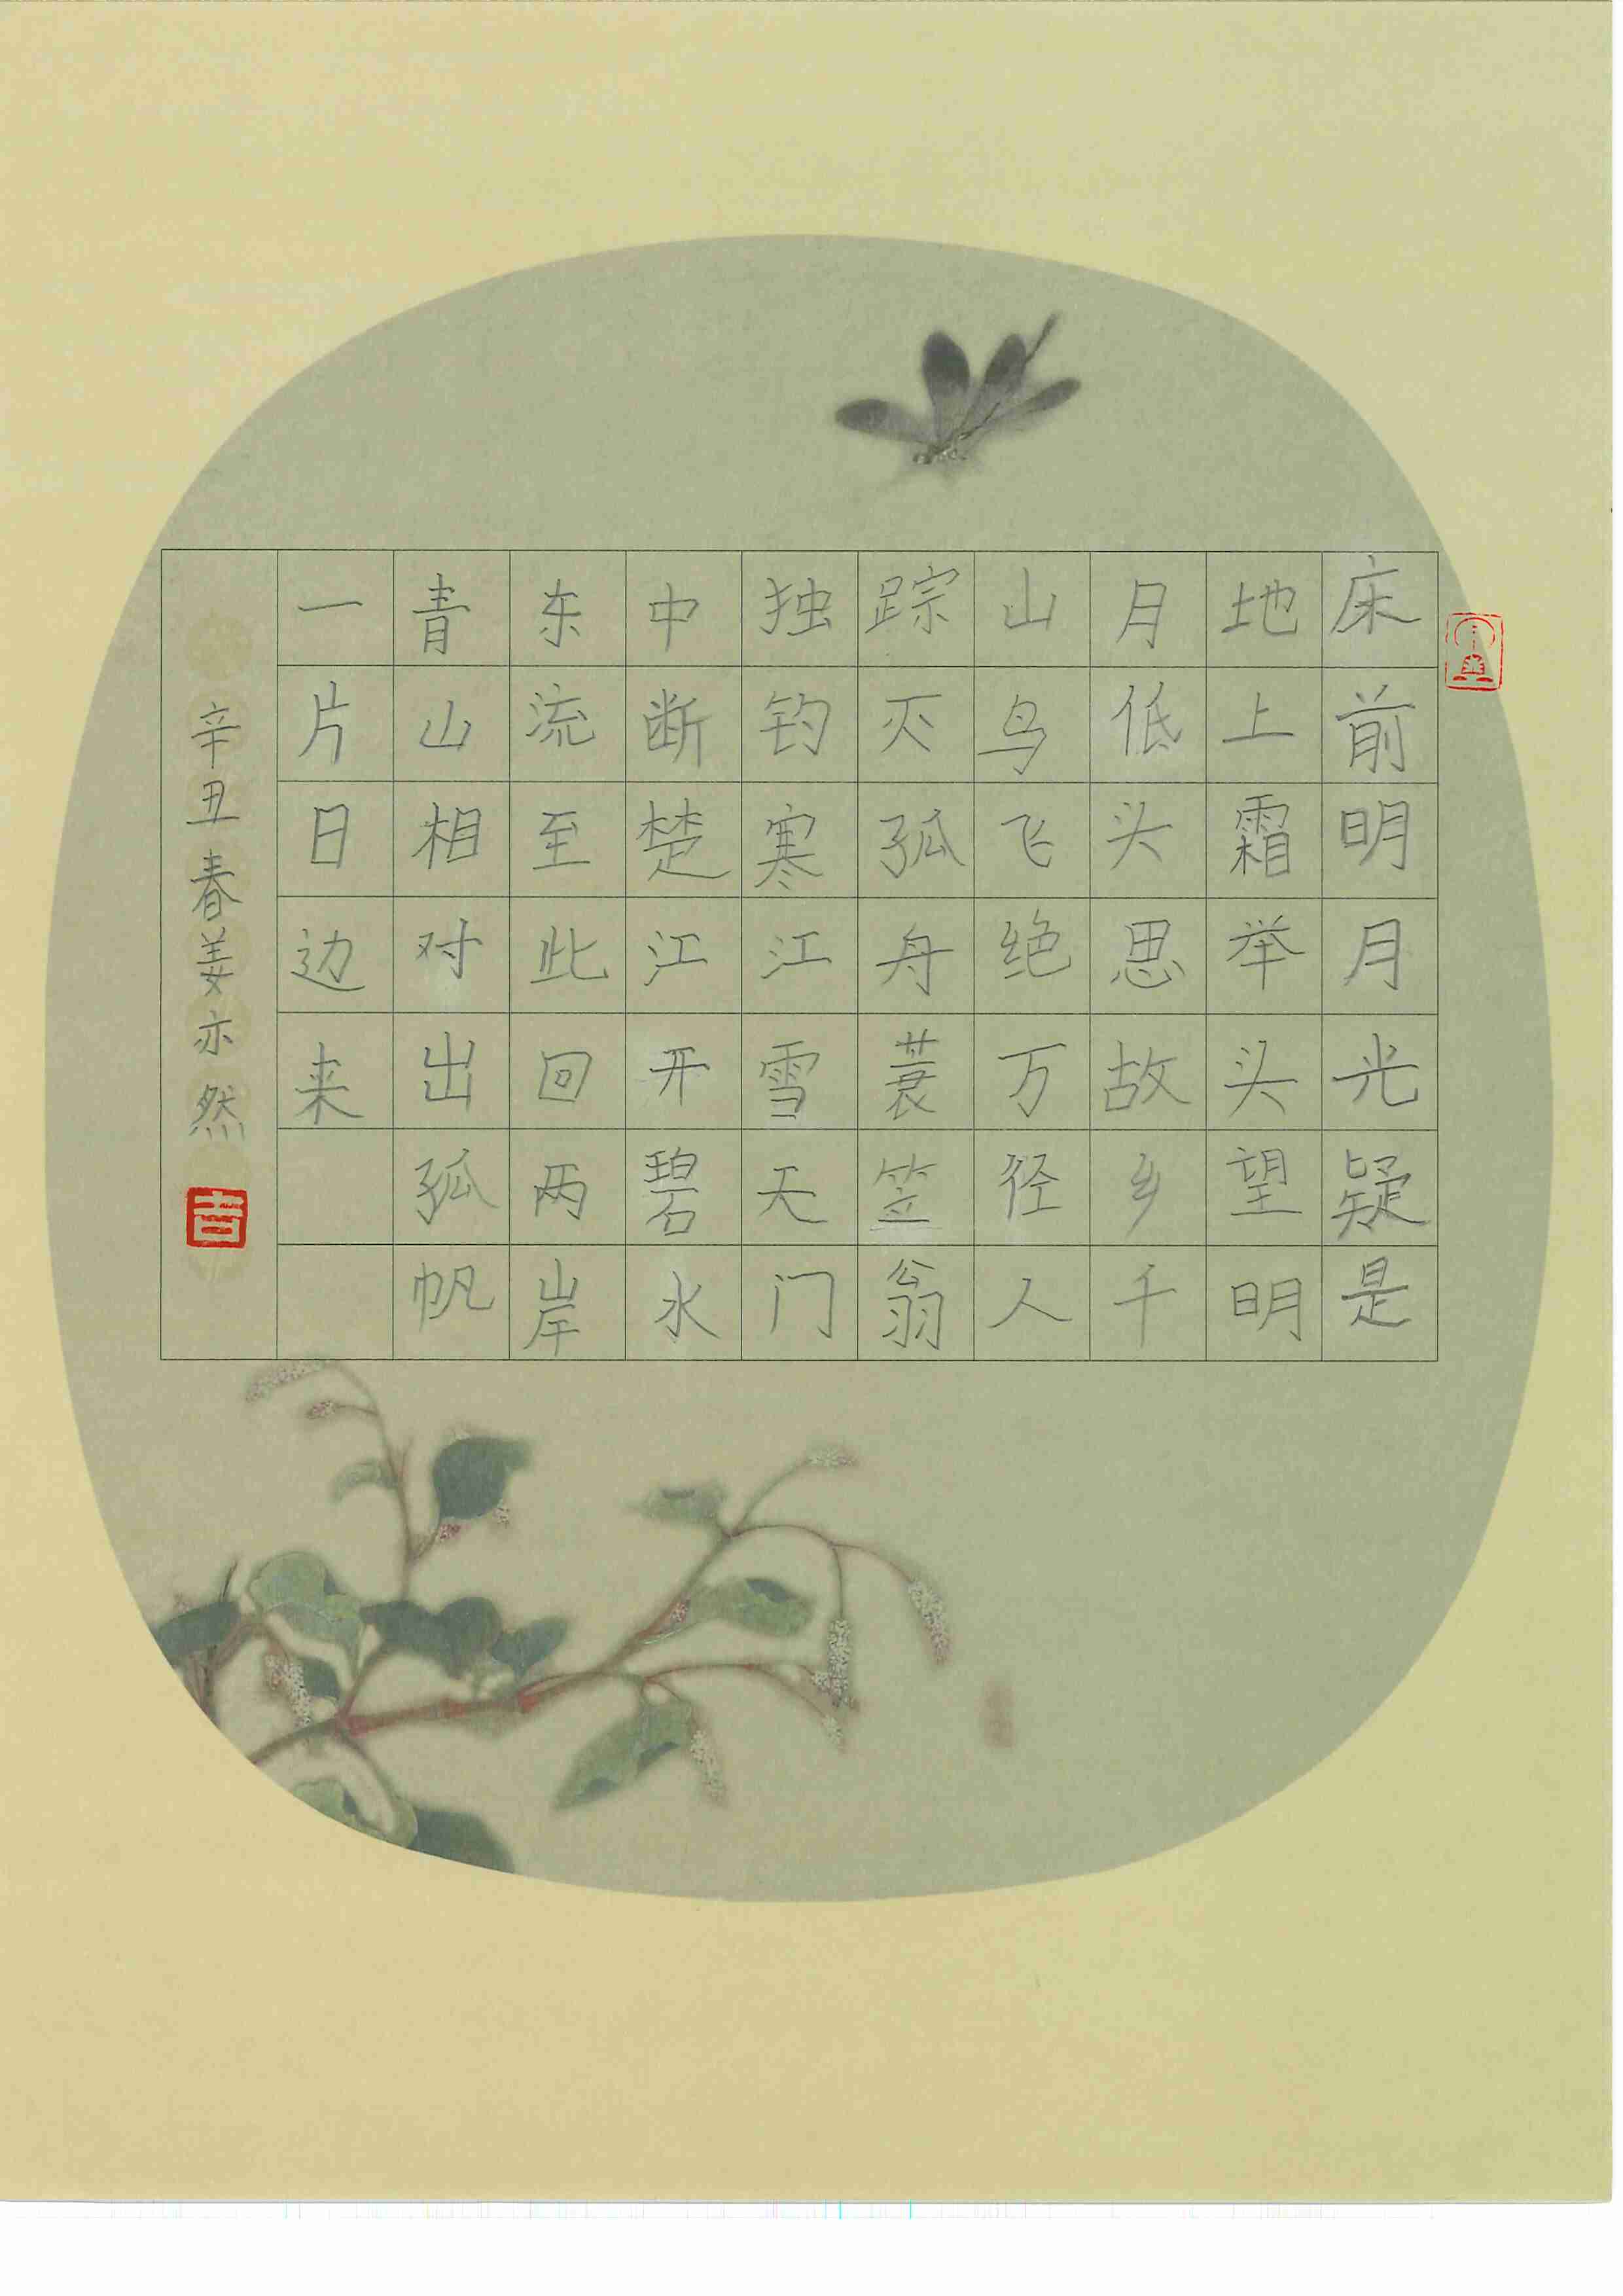 床前明月光疑是
地上霜举头望明
月低头思故乡千
山鸟飞绝万径人
踪灭孤舟蓑笠翁
独钓寒江雪天门
中断楚江开碧水
东流至此回两岸
青山相对出孤帆
一片日边来
辛丑春姜亦然